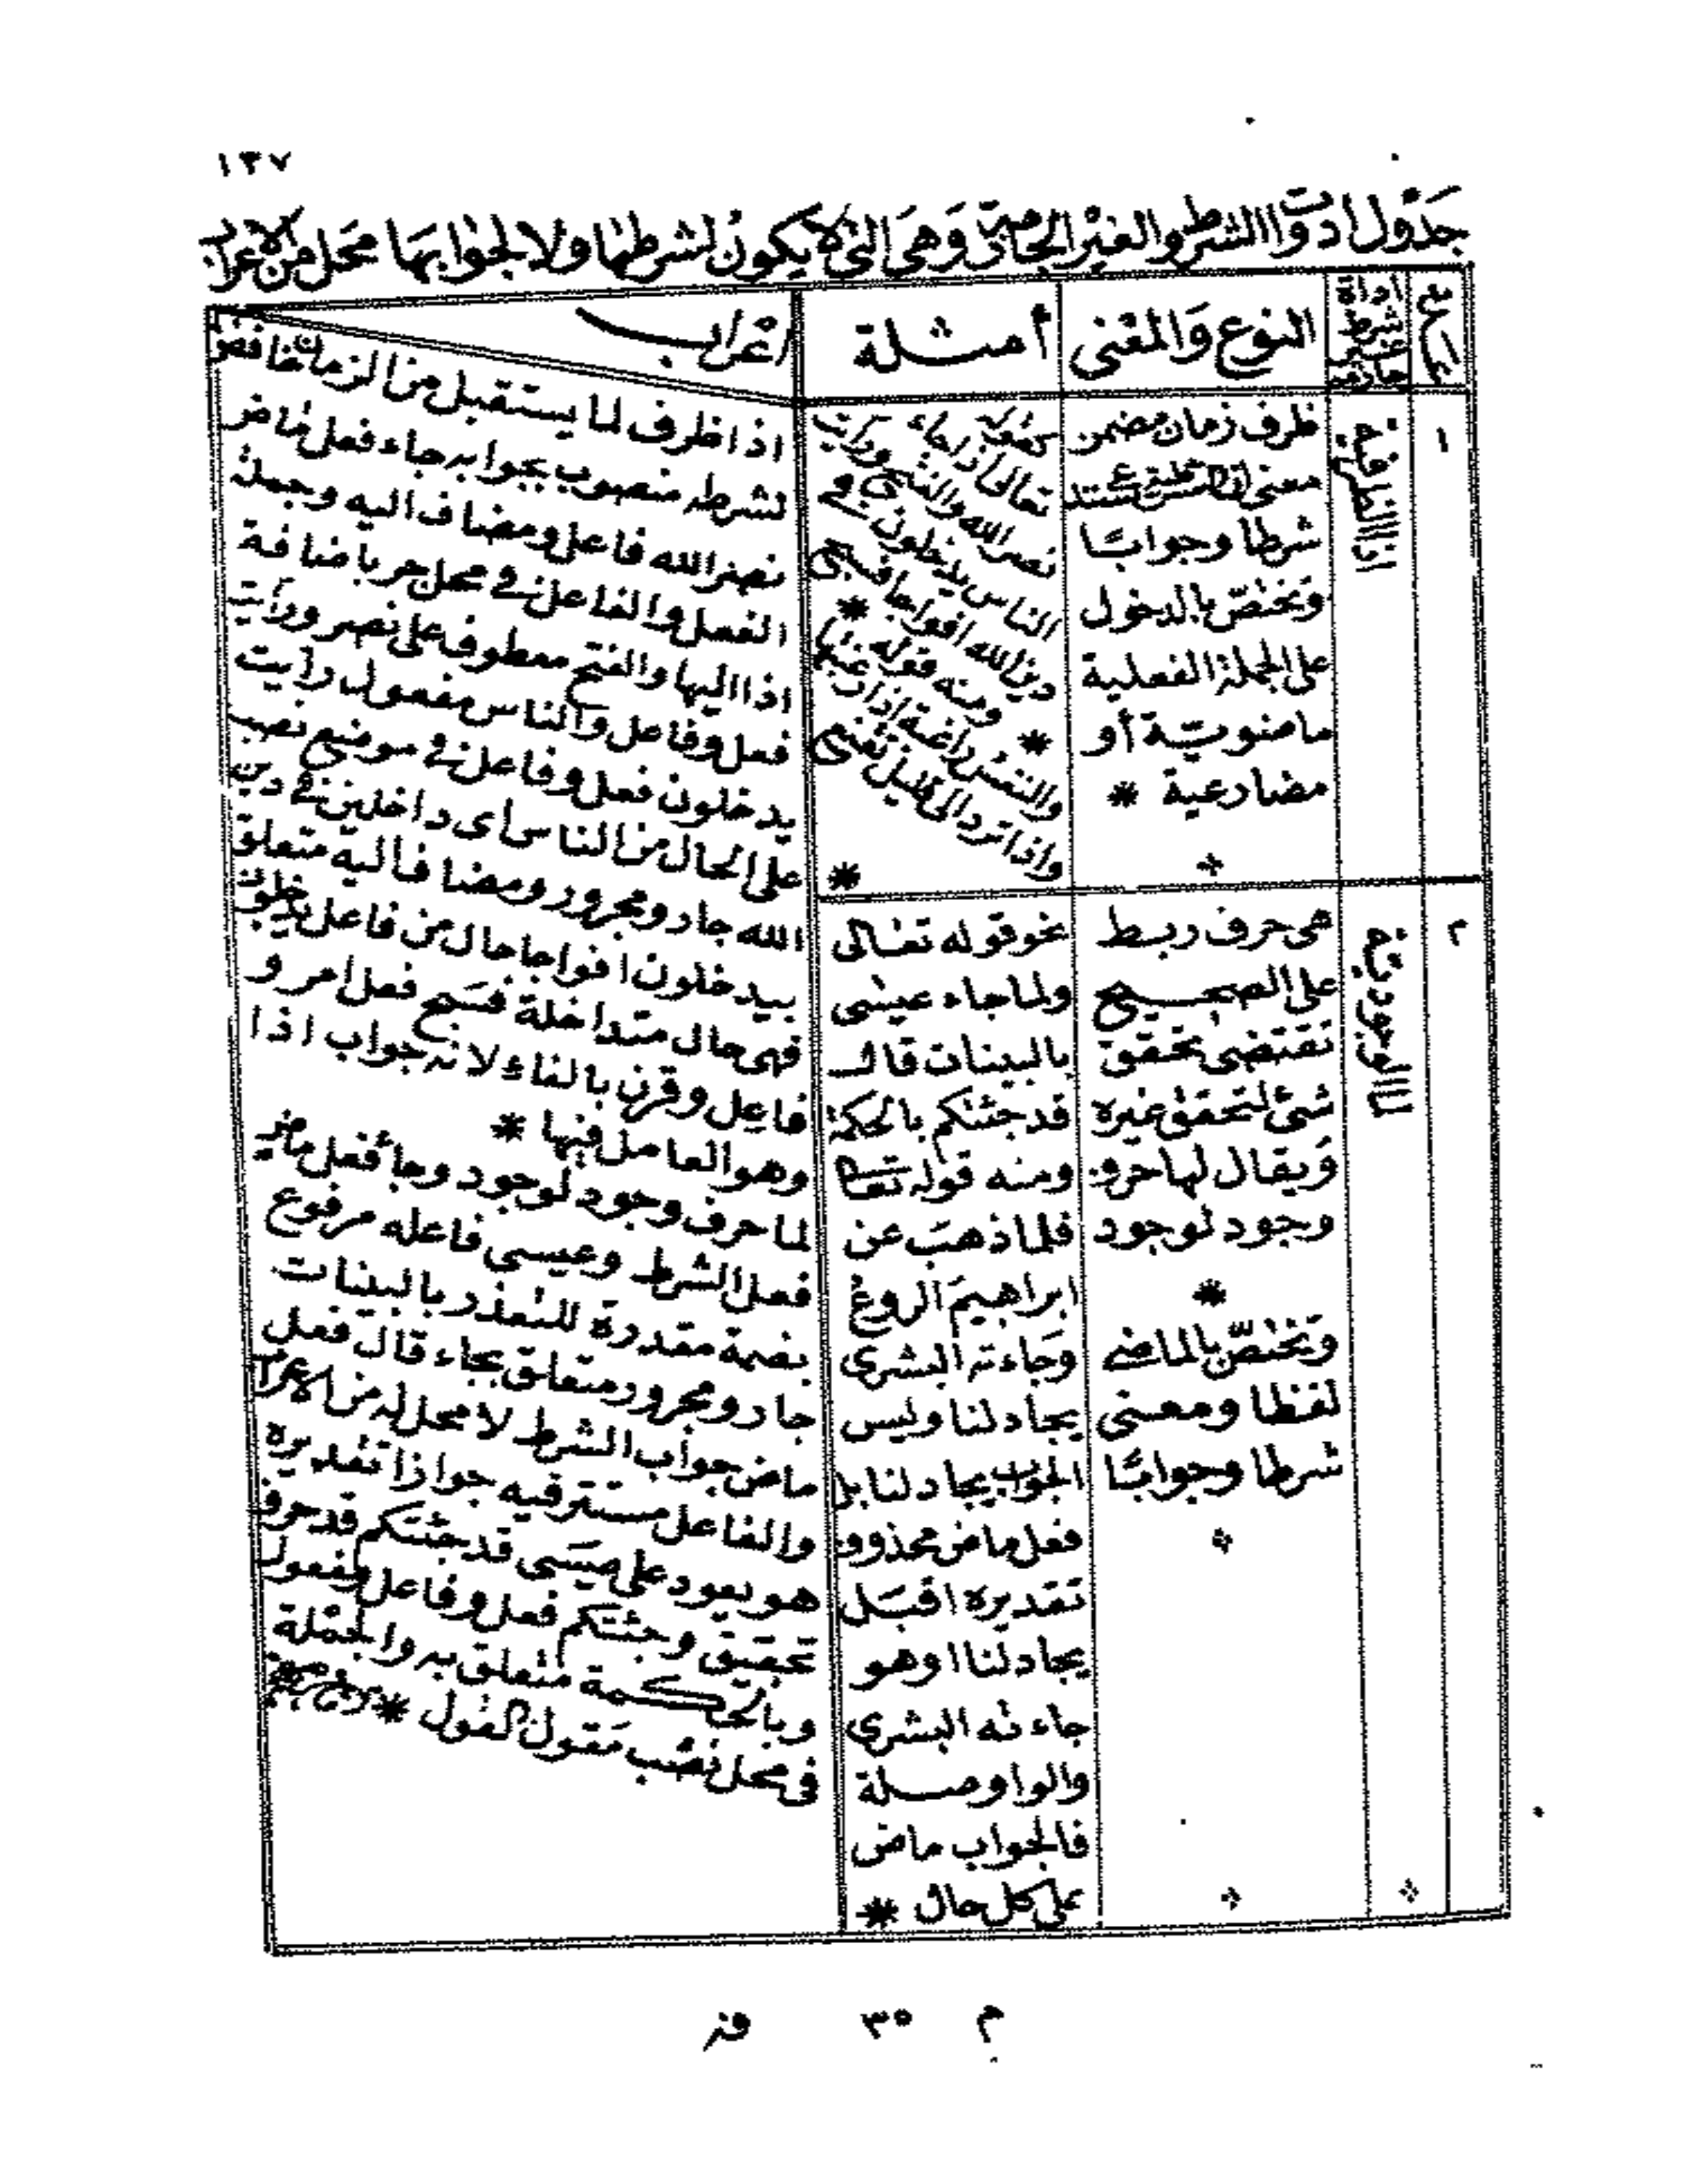 ١٣٧
جَدْول ادوات الشرط والغير الجازمة وَهىَ التى لا يكون لشرطها ولا لجوابهَا محَل من الاعراب
اداة شرط غير جازمة
النوع وَالمعْنى
أمثلة
اعْراب
١
اذا الظرفية
ظرف زمان مضمن
معنى ان الشرطية
شرطا وجوابًا
وتختصّ بالدخول
على الجملة الفعلية
ماضوية أو
مضارعية *
كقوله
تعالى اذا جاء
نصر الله والفتح ورأيت
الناس يدخلون فى
دين الله افواجا فسبح *
* ومنه قوله
والنفس راغبة اذا رغبتها
واذا ترد الى قليل تقنع
*
اذا ظرف لما يستقبل من الزمان خافض
لشرطه منصوب بجوابه جاء فعل ماض
نصر الله فاعل ومضاف اليه وجملة
الفعل والفاعل فى محل جر باضافة
اذا اليها والفتح معطوف على نصر ورأيت
فعل وفاعل والناس مفعول رأيت
يدخلون فعل وفاعل فى موضع نصب
على الحال من الناس اى داخلين فى دين
الله جار ومجرور ومضاف اليه متعلق
بيدخلون افواجا حال من فاعل يدخلون
فهى حال متداخلة فسَبح فعل امر و
فاعل وقرن بالفاء لانه جواب اذا
وهو العامل فيها *
٢
لما الوجودية
هى حرف ربط
على الصحيح
تقتضى تحقق
شئ لتحقق غيره
وَيقال لها حرف
وجود لوجود
*
وتختصّ بالماضى
لفظا ومعنى
شرطا وجوابًا
نحو قوله تعالى
ولما جاء عيسٰى
بالبينات قال
قد جئتكم بالحكمة
ومنه قوله تعالى
فلما ذهبَ عن
ابراهيمَ الروع
وَجاءته البشرى
يجادلنا وليس
الجواب يجادلنا بل
فعل ماض محذوف
تقديره اقبَل
يجادلنا او هو
جاءته البشرى
والواو صلة
فالجواب ماض
على كل حال *
لما حرف وجود لوجود وجاء فعل ماض
فعل الشرط وعيسى فاعله مرفوع
بضمة مقدرة للتعذر بالبينات
جار ومجرور متعلق بجاء قال فعل
ماض جواب الشرط لا محل له من الاعراب
والفاعل مستتر فيه جوازا تقديره
هو يعود على عيسَى قد جئتكم قد حرف
تحقيق وجئتكم فعل وفاعل ومفعول
وبالحكمة متعلق به والجمْلة
فى محل نصْب مَقول القول *
م ٣٥ قز